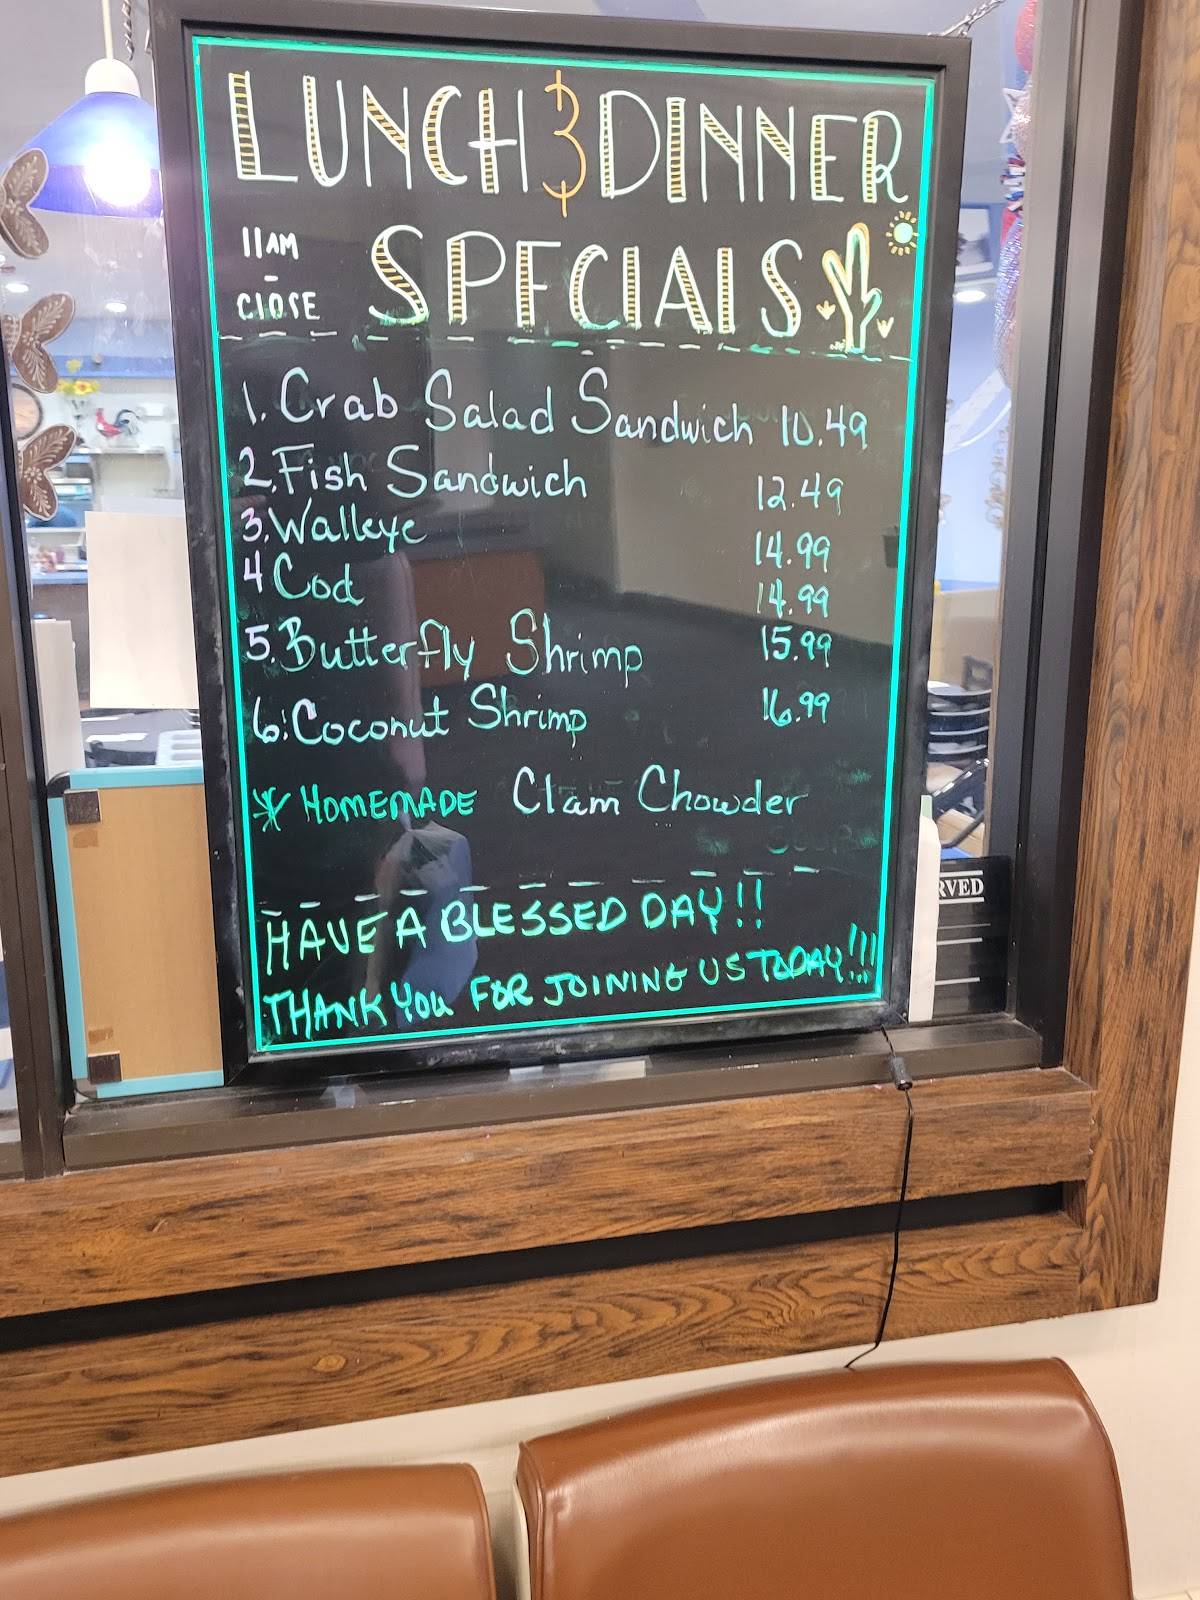 LUNCH & DINNER
11AM - CLOSE
SPECIALS
1. Crab Salad Sandwich 10.49
2. Fish Sandwich 12.49
3. Walleye 14.99
4 Cod 14.99
5. Butterfly Shrimp 15.99
6. Coconut Shrimp 16.99
* HOMEMADE Clam Chowder
HAVE A BLESSED DAY!!
THANK YOU FOR JOINING US TODAY!!!
RVED